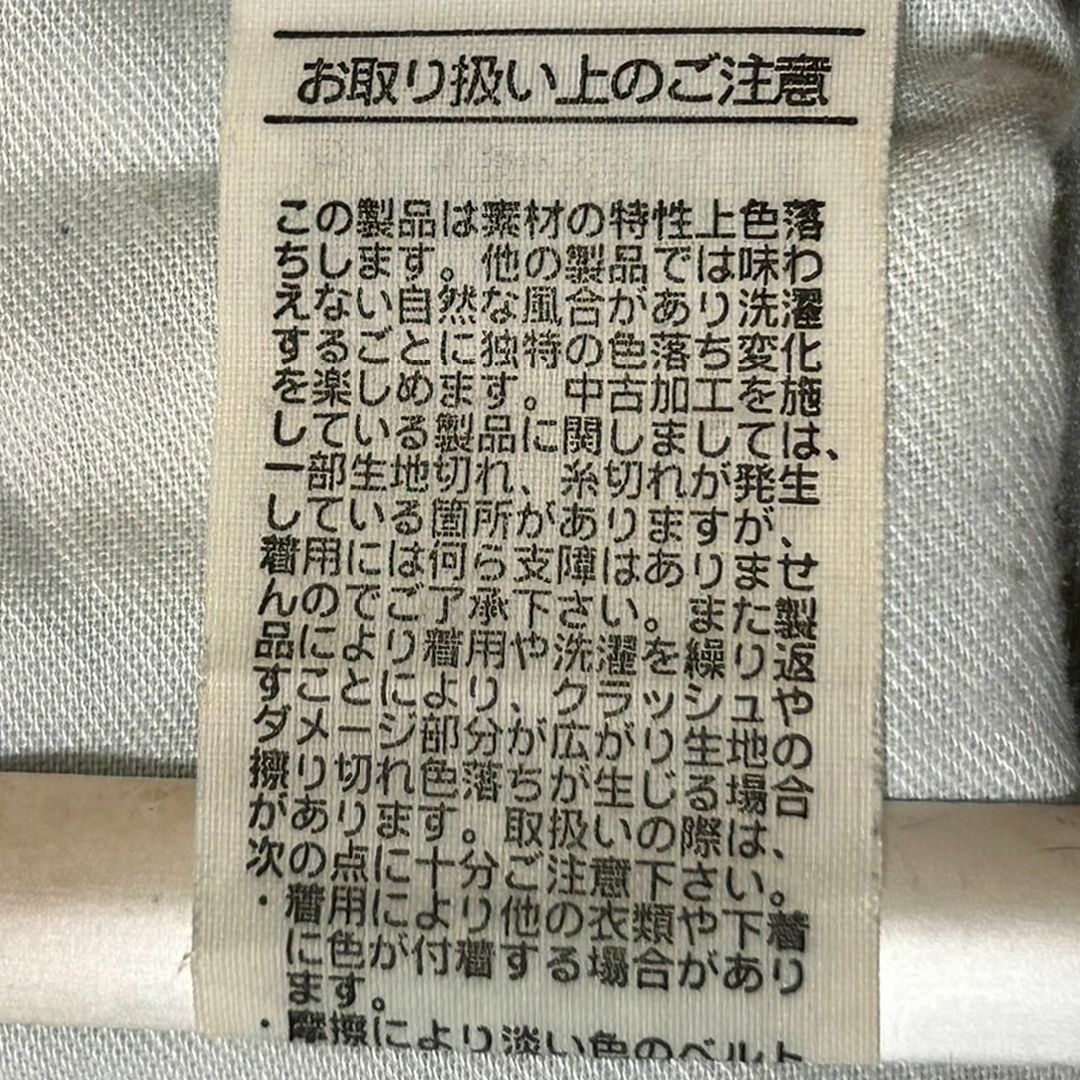 お取り扱い上のご注意
この製品は素材の特性上色落
ちします。他の製品では味わ
えない自然な風合があり洗濯
するごとに独特の色落ち変化
を楽しめます。中古加工を施
している製品に関しましては、
一部生地切れ、糸切れが発生
している箇所がありますが、
着用には何ら支障はありませ
んのでご了承下さい。また製
品により着用や、洗濯を繰り返
すことにより、クラッシュや
ダメージ部分が広がり生地の
擦り切れ色落ちが生じる場合
があります。取扱いの際は、
次の点に十分ご注意下さい。
・着用により他の衣類や下着
に色が付着する場合があり
ます。
・摩擦により淡い色のベルト